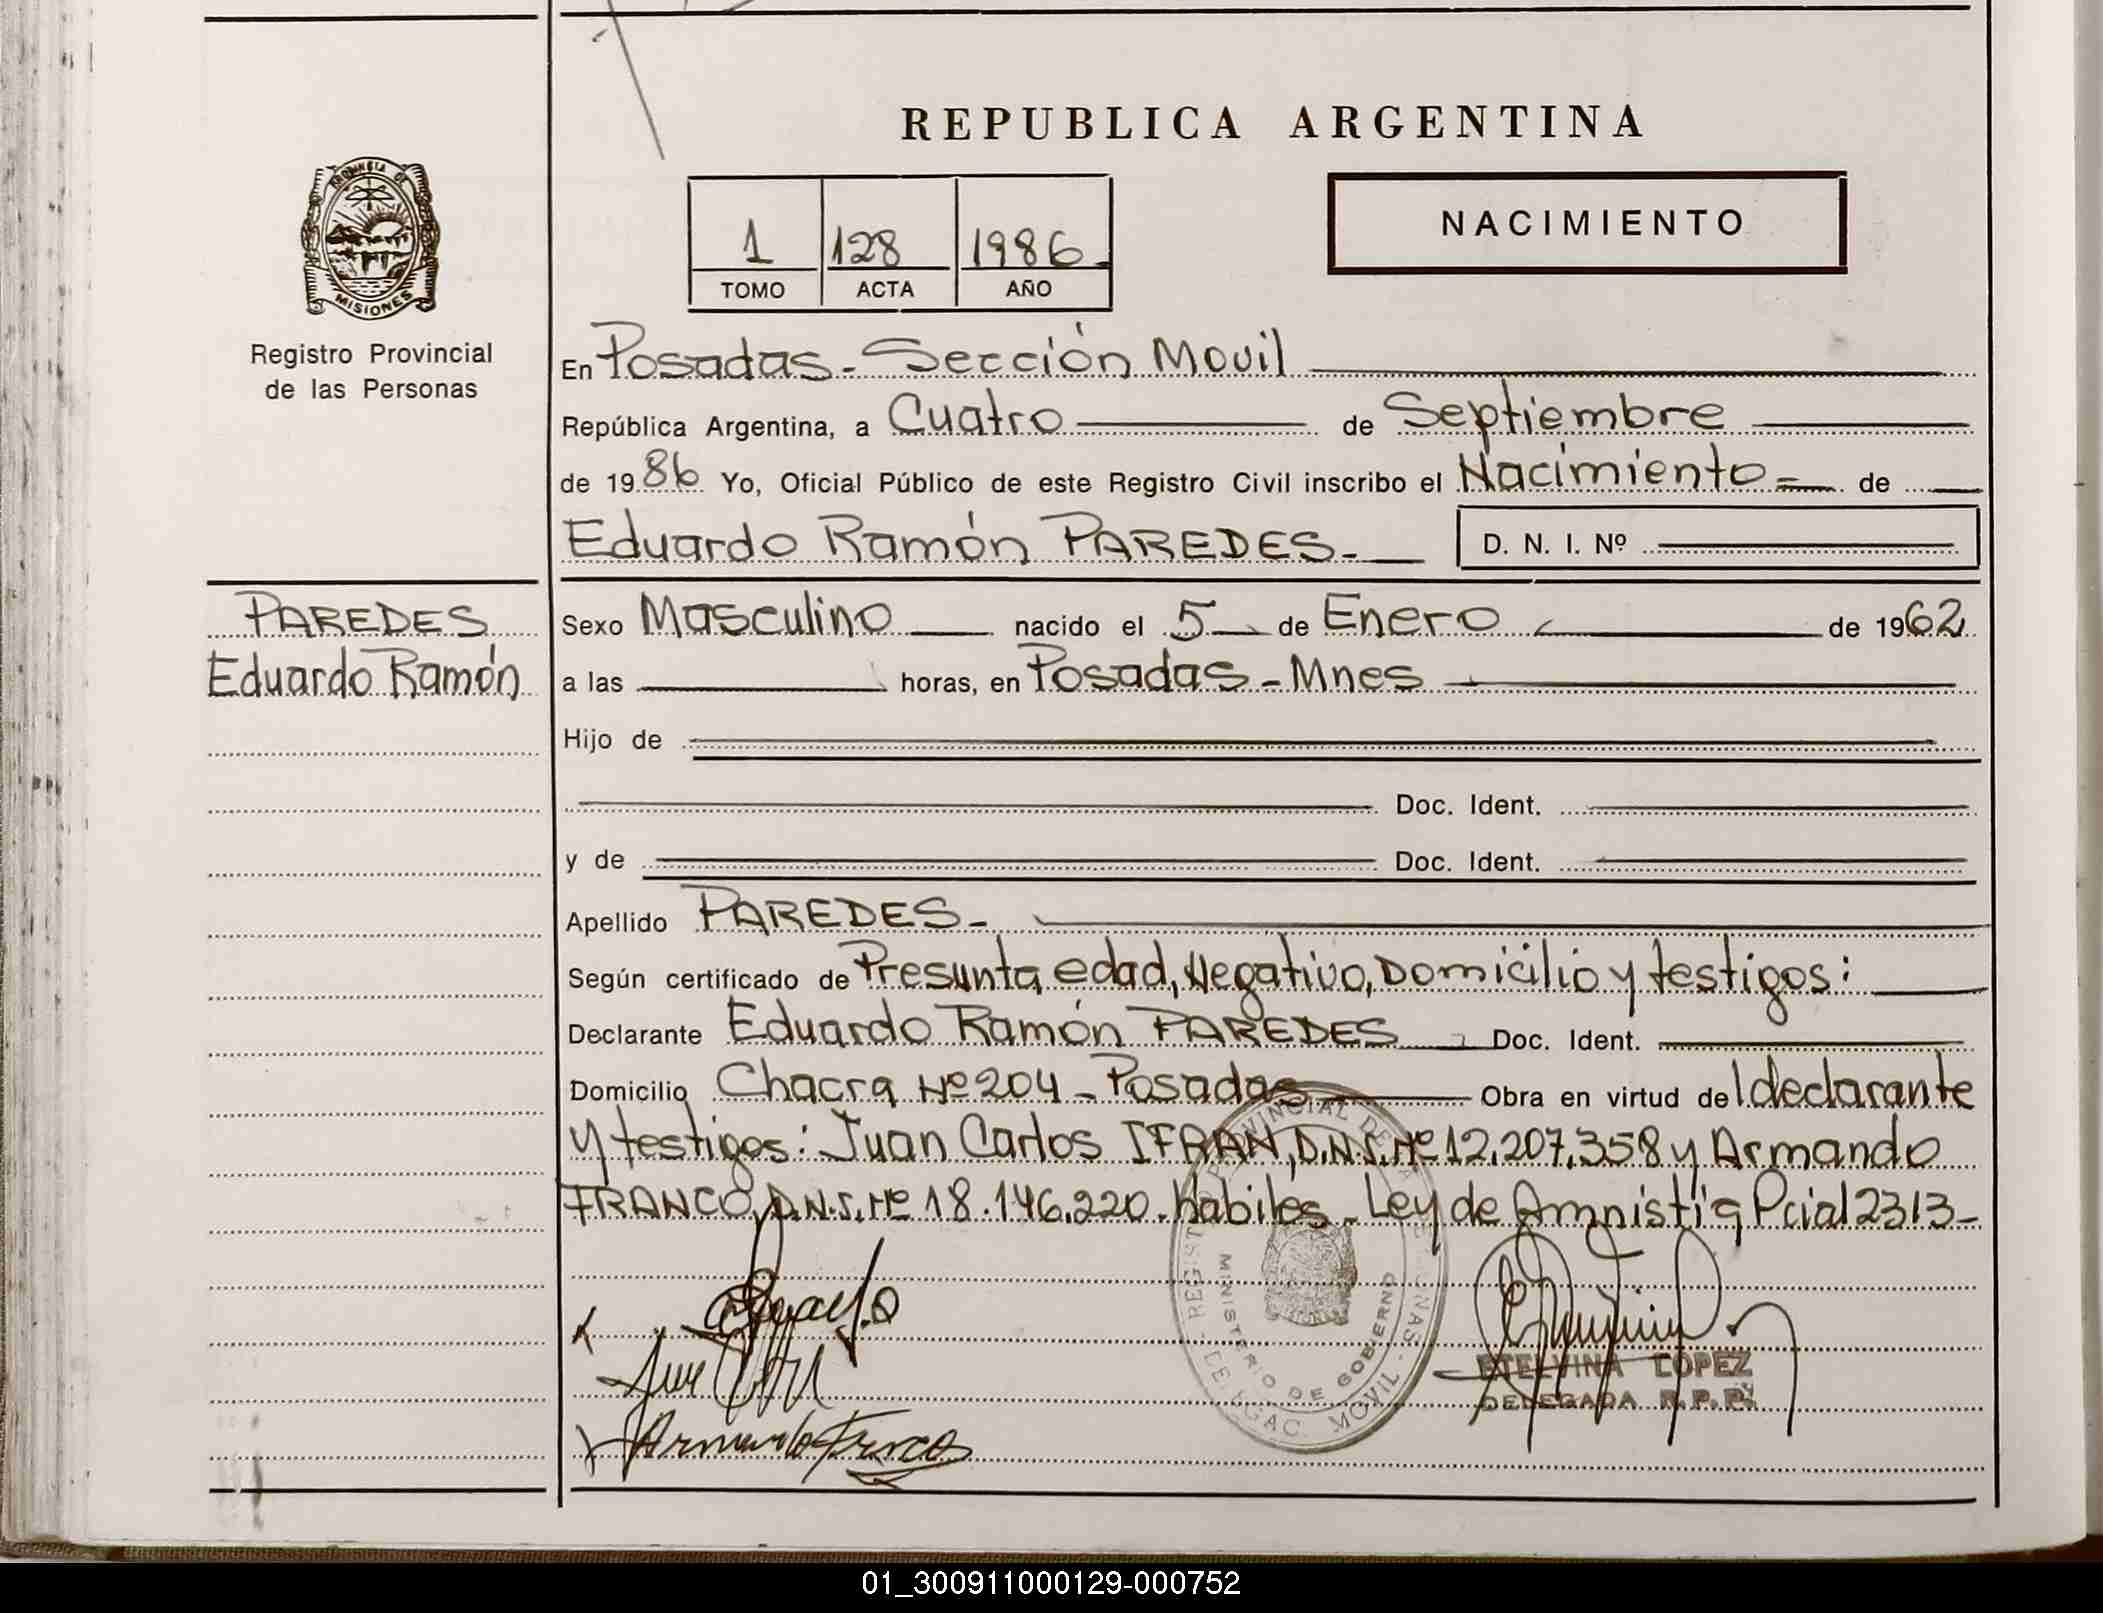 REPUBLICA ARGENTINA
PROVINCIA DE
MISIONES
Registro Provincial
de las Personas
NACIMIENTO
1 128 1986
TOMO ACTA AÑO
En Posadas - Sección Movil
República Argentina, a Cuatro de Septiembre
de 1986 Yo, Oficial Público de este Registro Civil inscribo el Nacimiento de
Eduardo Ramón PAREDES - D. N. I. Nº
PAREDES
Eduardo Ramón
Sexo Masculino nacido el 5 de Enero de 1962
a las horas, en Posadas - Mnes
Hijo de
Doc. Ident.
y de Doc. Ident.
Apellido PAREDES -
Según certificado de Presunta edad, Negativo, Domicilio y testigos:
Declarante Eduardo Ramón PAREDES Doc. Ident.
Domicilio Chacra Nº 204 - Posadas Obra en virtud del declarante
y testigos: Juan Carlos IFRAN, D.N.I. Nº 12.207.358 y Armando
FRANCO, D.N.I. Nº 18.146.220. Habiles - Ley de Amnistia Pcial 2313 -
MINISTERIO DE GOBIERNO
Armando Franco
ETELVINA LOPEZ
DELEGADA R.P.P.
01_300911000129-000752